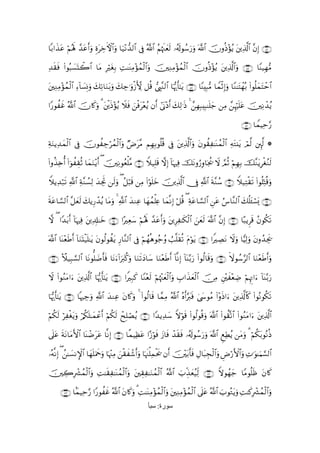 ﴿٥٦﴾ إِنَّ ٱلَّذِينَ يُؤْذُونَ ٱللَّهَ وَرَسُولَهُۥ لَعَنَهُمُ ٱللَّهُ فِى ٱلدُّنْيَا وَٱلْءَاخِرَةِ وَأَعَدَّ لَهُمْ عَذَابًا
مُّهِينًا ﴿٥٧﴾ وَٱلَّذِينَ يُؤْذُونَ ٱلْمُؤْمِنِينَ وَٱلْمُؤْمِنَٰتِ بِغَيْرِ مَا ٱكْتَسَبُوا۟ فَقَدِ
ٱحْتَمَلُوا۟ بُهْتَٰنًا وَإِثْمًا مُّبِينًا ﴿٥٨﴾ يَٰٓأَيُّهَا ٱلنَّبِىُّ قُل لِّأَزْوَٰجِكَ وَبَنَاتِكَ وَنِسَآءِ ٱلْمُؤْمِنِينَ
يُدْنِينَ عَلَيْهِنَّ مِن جَلَٰبِيبِهِنَّ ۚ ذَٰلِكَ أَدْنَىٰٓ أَن يُعْرَفْنَ فَلَا يُؤْذَيْنَ ۗ وَكَانَ ٱللَّهُ غَفُورًا
رَّحِيمًا ﴿٥٩﴾
۞ لَّئِن لَّمْ يَنتَهِ ٱلْمُنَٰفِقُونَ وَٱلَّذِينَ فِى قُلُوبِهِم مَّرَضٌ وَٱلْمُرْجِفُونَ فِى ٱلْمَدِينَةِ
لَنُغْرِيَنَّكَ بِهِمْ ثُمَّ لَا يُجَاوِرُونَكَ فِيهَآ إِلَّا قَلِيلًا ﴿٦٠﴾ مَّلْعُونِينَ ۖ أَيْنَمَا ثُقِفُوٓا۟ أُخِذُوا۟
وَقُتِّلُوا۟ تَقْتِيلًا ﴿٦١﴾ سُنَّةَ ٱللَّهِ فِى ٱلَّذِينَ خَلَوْا۟ مِن قَبْلُ ۖ وَلَن تَجِدَ لِسُنَّةِ ٱللَّهِ تَبْدِيلًا
﴿٦٢﴾ يَسْـَٔلُكَ ٱلنَّاسُ عَنِ ٱلسَّاعَةِ ۖ قُلْ إِنَّمَا عِلْمُهَا عِندَ ٱللَّهِ ۚ وَمَا يُدْرِيكَ لَعَلَّ ٱلسَّاعَةَ
تَكُونُ قَرِيبًا ﴿٦٣﴾ إِنَّ ٱللَّهَ لَعَنَ ٱلْكَٰفِرِينَ وَأَعَدَّ لَهُمْ سَعِيرًا ﴿٦٤﴾ خَٰلِدِينَ فِيهَآ أَبَدًا ۖ لَّا
يَجِدُونَ وَلِيًّا وَلَا نَصِيرًا ﴿٦٥﴾ يَوْمَ تُقَلَّبُ وُجُوهُهُمْ فِى ٱلنَّارِ يَقُولُونَ يَٰلَيْتَنَآ أَطَعْنَا ٱللَّهَ
وَأَطَعْنَا ٱلرَّسُولَا۠ ﴿٦٦﴾ وَقَالُوا۟ رَبَّنَآ إِنَّآ أَطَعْنَا سَادَتَنَا وَكُبَرَآءَنَا فَأَضَلُّونَا ٱلسَّبِيلَا۠ ﴿٦٧﴾
رَبَّنَآ ءَاتِهِمْ ضِعْفَيْنِ مِنَ ٱلْعَذَابِ وَٱلْعَنْهُمْ لَعْنًا كَبِيرًا ﴿٦٨﴾ يَٰٓأَيُّهَا ٱلَّذِينَ ءَامَنُوا۟ لَا
تَكُونُوا۟ كَٱلَّذِينَ ءَاذَوْا۟ مُوسَىٰ فَبَرَّأَهُ ٱللَّهُ مِمَّا قَالُوا۟ ۚ وَكَانَ عِندَ ٱللَّهِ وَجِيهًا ﴿٦٩﴾ يَٰٓأَيُّهَا
ٱلَّذِينَ ءَامَنُوا۟ ٱتَّقُوا۟ ٱللَّهَ وَقُولُوا۟ قَوْلًا سَدِيدًا ﴿٧٠﴾ يُصْلِحْ لَكُمْ أَعْمَٰلَكُمْ وَيَغْفِرْ لَكُمْ
ذُنُوبَكُمْ ۗ وَمَن يُطِعِ ٱللَّهَ وَرَسُولَهُۥ فَقَدْ فَازَ فَوْزًا عَظِيمًا ﴿٧١﴾ إِنَّا عَرَضْنَا ٱلْأَمَانَةَ عَلَى
ٱلسَّمَٰوَٰتِ وَٱلْأَرْضِ وَٱلْجِبَالِ فَأَبَيْنَ أَن يَحْمِلْنَهَا وَأَشْفَقْنَ مِنْهَا وَحَمَلَهَا ٱلْإِنسَٰنُ ۖ إِنَّهُۥ
كَانَ ظَلُومًا جَهُولًا ﴿٧٢﴾ لِّيُعَذِّبَ ٱللَّهُ ٱلْمُنَٰفِقِينَ وَٱلْمُنَٰفِقَٰتِ وَٱلْمُشْرِكِينَ
وَٱلْمُشْرِكَٰتِ وَيَتُوبَ ٱللَّهُ عَلَى ٱلْمُؤْمِنِينَ وَٱلْمُؤْمِنَٰتِ ۗ وَكَانَ ٱللَّهُ غَفُورًا رَّحِيمًا ﴿٧٣﴾
سورة: سبأ